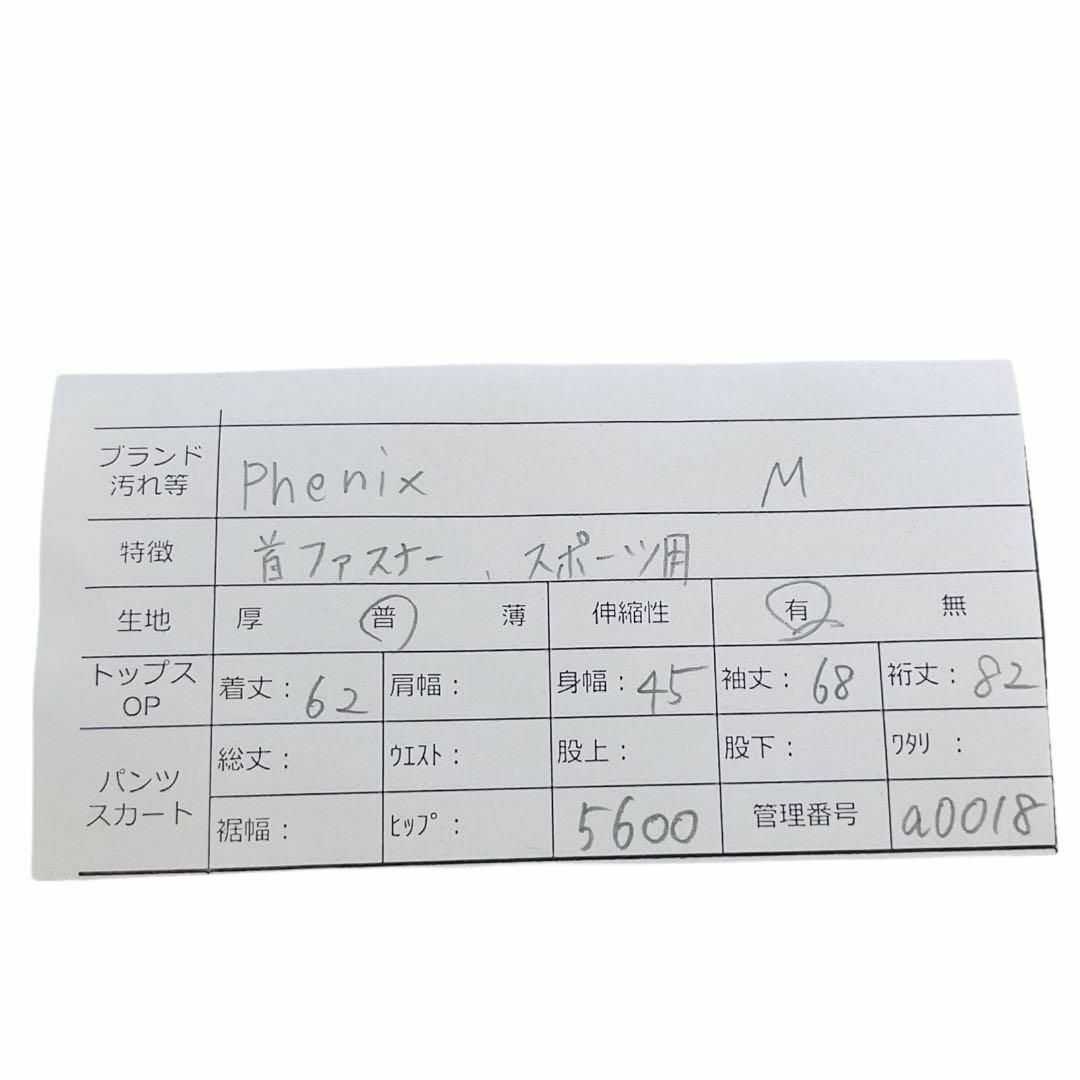 ブランド
汚れ等 Phenix M
特徴 首ファスナー、スポーツ用
生地 厚 普 薄 伸縮性 有 無
トップス
OP 着丈：62 肩幅： 身幅：45 袖丈：68 裄丈：82
パンツ
スカート 総丈： ｳｴｽﾄ： 股上： 股下： ﾜﾀﾘ ：
裾幅： ﾋｯﾌﾟ： 5600 管理番号 a0018